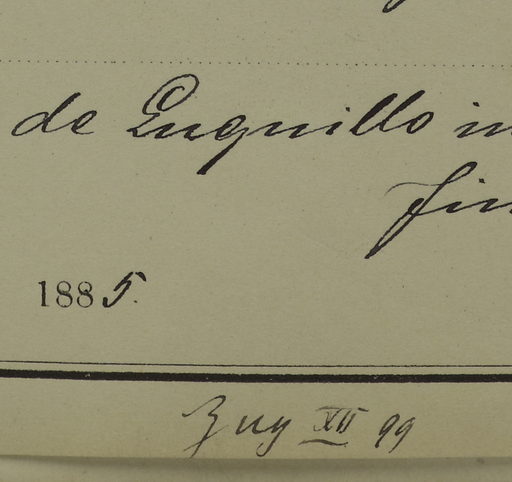 de Luquillo in
fin
1885.
Zug XII 99